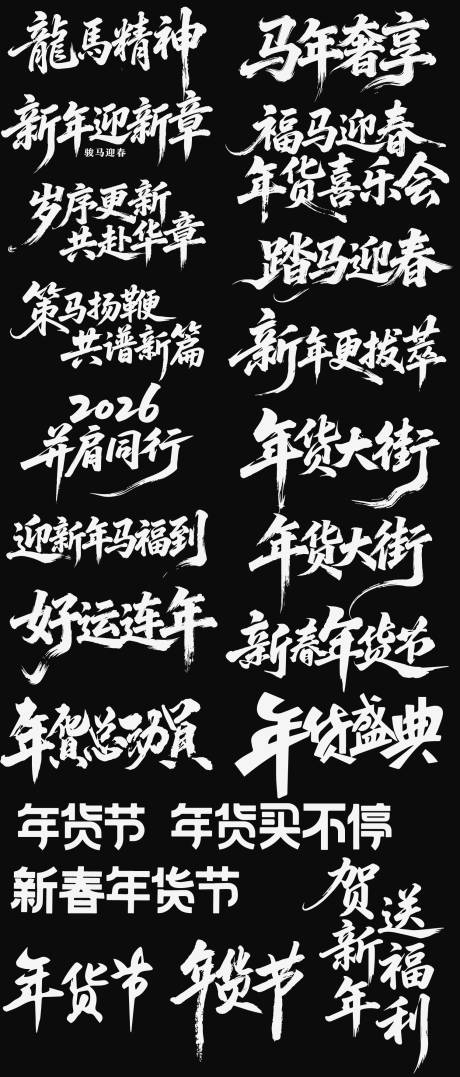 龍馬精神
新年迎新章
骏马迎春
岁序更新
共赴华章
策马扬鞭
共谱新篇
2026
并肩同行
迎新年马福到
好运连年
年货总动员
马年奢享
福马迎春
年货喜乐会
踏马迎春
新年更拔萃
年货大街
年货大街
新春年货节
年货盛典
年货节
年货买不停
新春年货节
年货节
年货节
贺新年
送福利